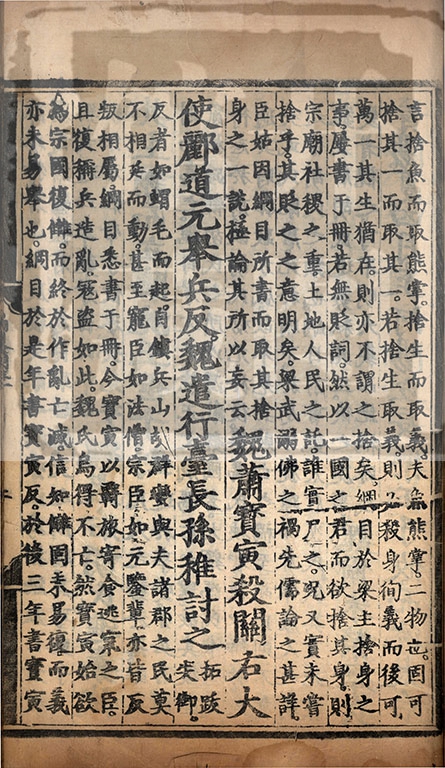 言捨魚而取熊掌。捨生取義。夫魚熊掌。二物也。固可
捨其一而取其一。若捨生取義。則必殺身徇義而後可。
萬一其生猶在。則亦不謂之捨矣。綱目於梁主捨身之
事。屢書于冊。若無貶詞。然以一國之君而欲捨其身。則
宗廟社稷之重。土地人民之託。誰實尸之。況又實未嘗
捨乎。其貶之之意明矣。梁武溺佛之禍。先儒論之甚詳。
臣姑因綱目所書而取其捨
身之一說。極論其所以妄云
魏蕭寶寅殺關右大
使酈道元舉兵反。魏遣行臺長孫稚討之
拓跋
失御。
反者如蝟毛而起。兵山群蠻與夫諸郡之民莫
不相延而動。甚至寵臣如法僧。宗臣如元鑒輩亦皆反
叛相屬。綱目悉書于冊。今寶寅以羇旅寄食逃竄之臣。
且復稱兵造亂。寇盜如此。魏氏烏得不亡。然寶寅始欲
為宗國復讎。而終於作亂亡滅。信知讎固未易復而義
亦未易舉也。綱目於是年書寶寅反。於後三年書寶寅